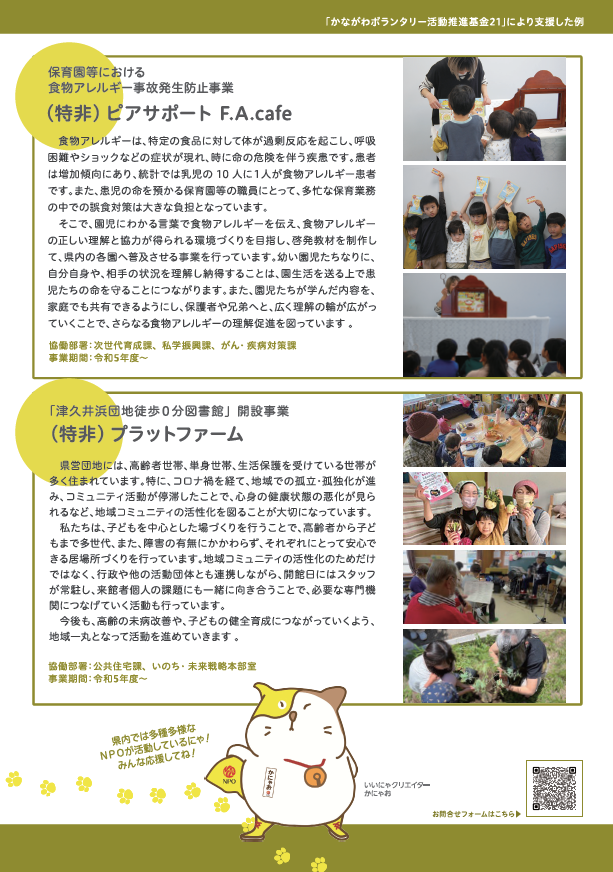 「かながわボランタリー活動推進基金21」により支援した例
保育園等における
食物アレルギー事故発生防止事業
（特非）ピアサポート F.A.cafe
食物アレルギーは、特定の食品に対して体が過剰反応を起こし、呼吸
困難やショックなどの症状が現れ、時に命の危険を伴う疾患です。患者
は増加傾向にあり、統計では乳児の 10 人に1人が食物アレルギー患者
です。また、患児の命を預かる保育園等の職員にとって、多忙な保育業務
の中での誤食対策は大きな負担となっています。
そこで、園児にわかる言葉で食物アレルギーを伝え、食物アレルギー
の正しい理解と協力が得られる環境づくりを目指し、啓発教材を制作し
て、県内の各園へ普及させる事業を行っています。幼い園児たちなりに、
自分自身や、相手の状況を理解し納得することは、園生活を送る上で患
児たちの命を守ることにつながります。また、園児たちが学んだ内容を、
家庭でも共有できるようにし、保護者や兄弟へと、広く理解の輪が広がっ
ていくことで、さらなる食物アレルギーの理解促進を図っています 。
協働部署：次世代育成課、私学振興課、がん・疾病対策課
事業期間：令和5年度～
「津久井浜団地徒歩０分図書館」開設事業
（特非）プラットファーム
県営団地には、高齢者世帯、単身世帯、生活保護を受けている世帯が
多く住まれています。特に、コロナ禍を経て、地域での孤立・孤独化が進
み、コミュニティ活動が停滞したことで、心身の健康状態の悪化が見ら
れるなど、地域コミュニティの活性化を図ることが大切になっています。
私たちは、子どもを中心とした場づくりを行うことで、高齢者から子ど
もまで多世代、また、障害の有無にかかわらず、それぞれにとって安心で
きる居場所づくりを行っています。地域コミュニティの活性化のためだけ
ではなく、行政や他の活動団体とも連携しながら、開館日にはスタッフ
が常駐し、来館者個人の課題にも一緒に向き合うことで、必要な専門機
関につなげていく活動も行っています。
今後も、高齢の未病改善や、子どもの健全育成につながっていくよう、
地域一丸となって活動を進めていきます 。
協働部署：公共住宅課、いのち・未来戦略本部室
事業期間：令和5年度～
県内では多種多様な
ＮＰＯが活動しているにゃ！
みんな応援してね！
NPO
かにゃお
いいにゃクリエイター
かにゃお
お問合せフォームはこちら▶